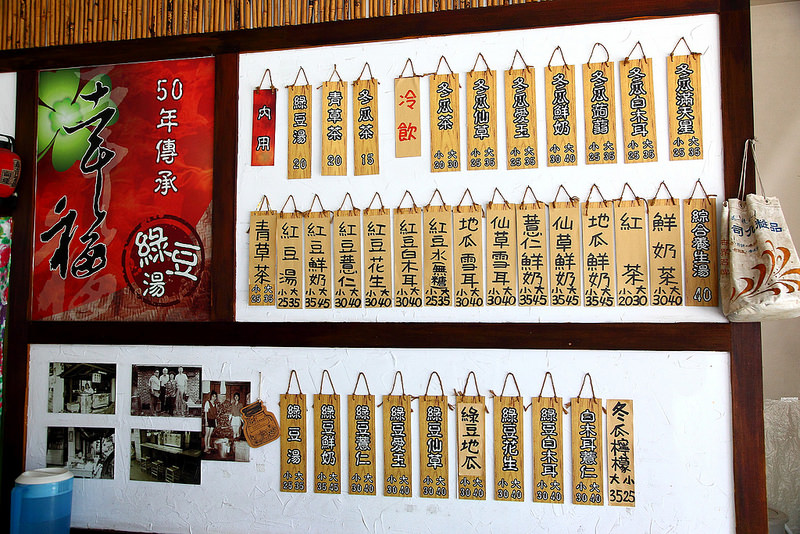 幸福
50年傳承
綠豆湯
內用
綠豆湯 20
青草茶 20
冬瓜茶 15
冷飲
冬瓜茶 小20 大30
冬瓜仙草 小25 大35
冬瓜愛玉 小25 大35
冬瓜鮮奶 小30 大40
冬瓜蒟蒻 小25 大35
冬瓜白木耳 小25 大35
冬瓜滿天星 小25 大35
青草茶 小25 大35
紅豆湯 小25 大35
紅豆鮮奶 小35 大45
紅豆薏仁 小30 大40
紅豆花生 小30 大40
紅豆白木耳 小30 大40
紅豆水無糖 小25 大35
地瓜雪耳 小30 大40
仙草雪耳 小30 大40
薏仁鮮奶 小35 大45
仙草鮮奶 小35 大45
地瓜鮮奶 小35 大45
紅茶 小20 大30
鮮奶茶 小30 大40
綜合養生湯 40
綠豆湯 小25 大35
綠豆鮮奶 小35 大45
綠豆薏仁 小30 大40
綠豆愛玉 小30 大40
綠豆仙草 小30 大40
綠豆地瓜 小30 大40
綠豆花生 小30 大40
綠豆白木耳 小30 大40
白木耳薏仁 小30 大40
冬瓜檸檬 大35 小25